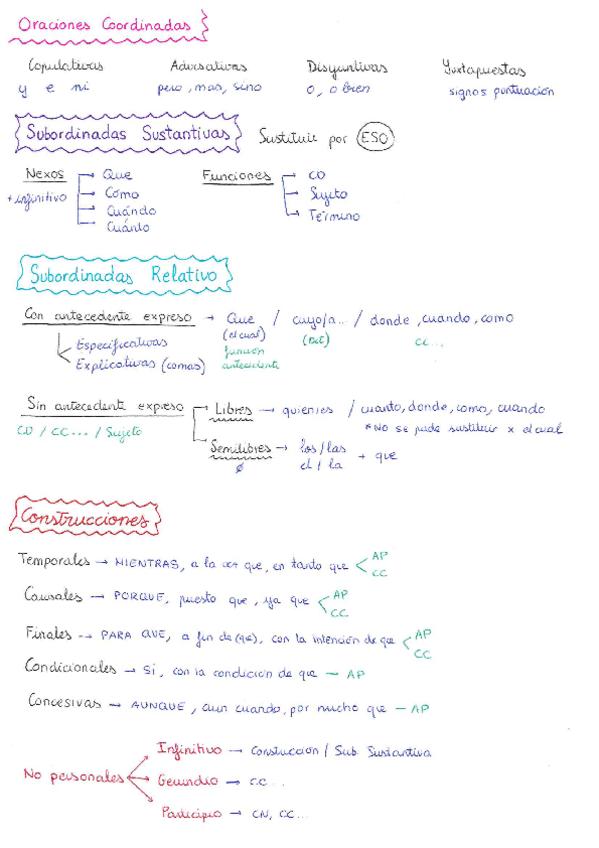 Oraciones Coordinadas
Copulativas Adversativas Disyuntivas Yuxtapuestas
y e ni pero, mas, sino o, o bien signos puntuación
Subordinadas Sustantivas Sustituir por ESO
Nexos → Que Funciones → CD
+ infinitivo → Cómo → Sujeto
→ Cuándo → Término
→ Cuánto
Subordinadas Relativo
Con antecedente expreso → Que / cuyo/a... / donde, cuando, como
(el cual) (Det) CC...
Especificativas función
Explicativas (comas) antecedente
Sin antecedente expreso → Libres → quien/es / cuanto, donde, como, cuando
CD / CC... / Sujeto *No se puede sustituir x el cual
→ Semilibres → los / las + que
Ø el / la
Construcciones
Temporales → MIENTRAS, a la vez que, en tanto que < AP
CC
Causales → PORQUE, puesto que, ya que < AP
CC
Finales → PARA QUE, a fin de (que), con la intención de que < AP
CC
Condicionales → SI, con la condición de que — AP
Concesivas → AUNQUE, aun cuando, por mucho que — AP
Infinitivo → Construcción / Sub Sustantiva
No personales → Gerundio → CC...
Participio → CN, CC...